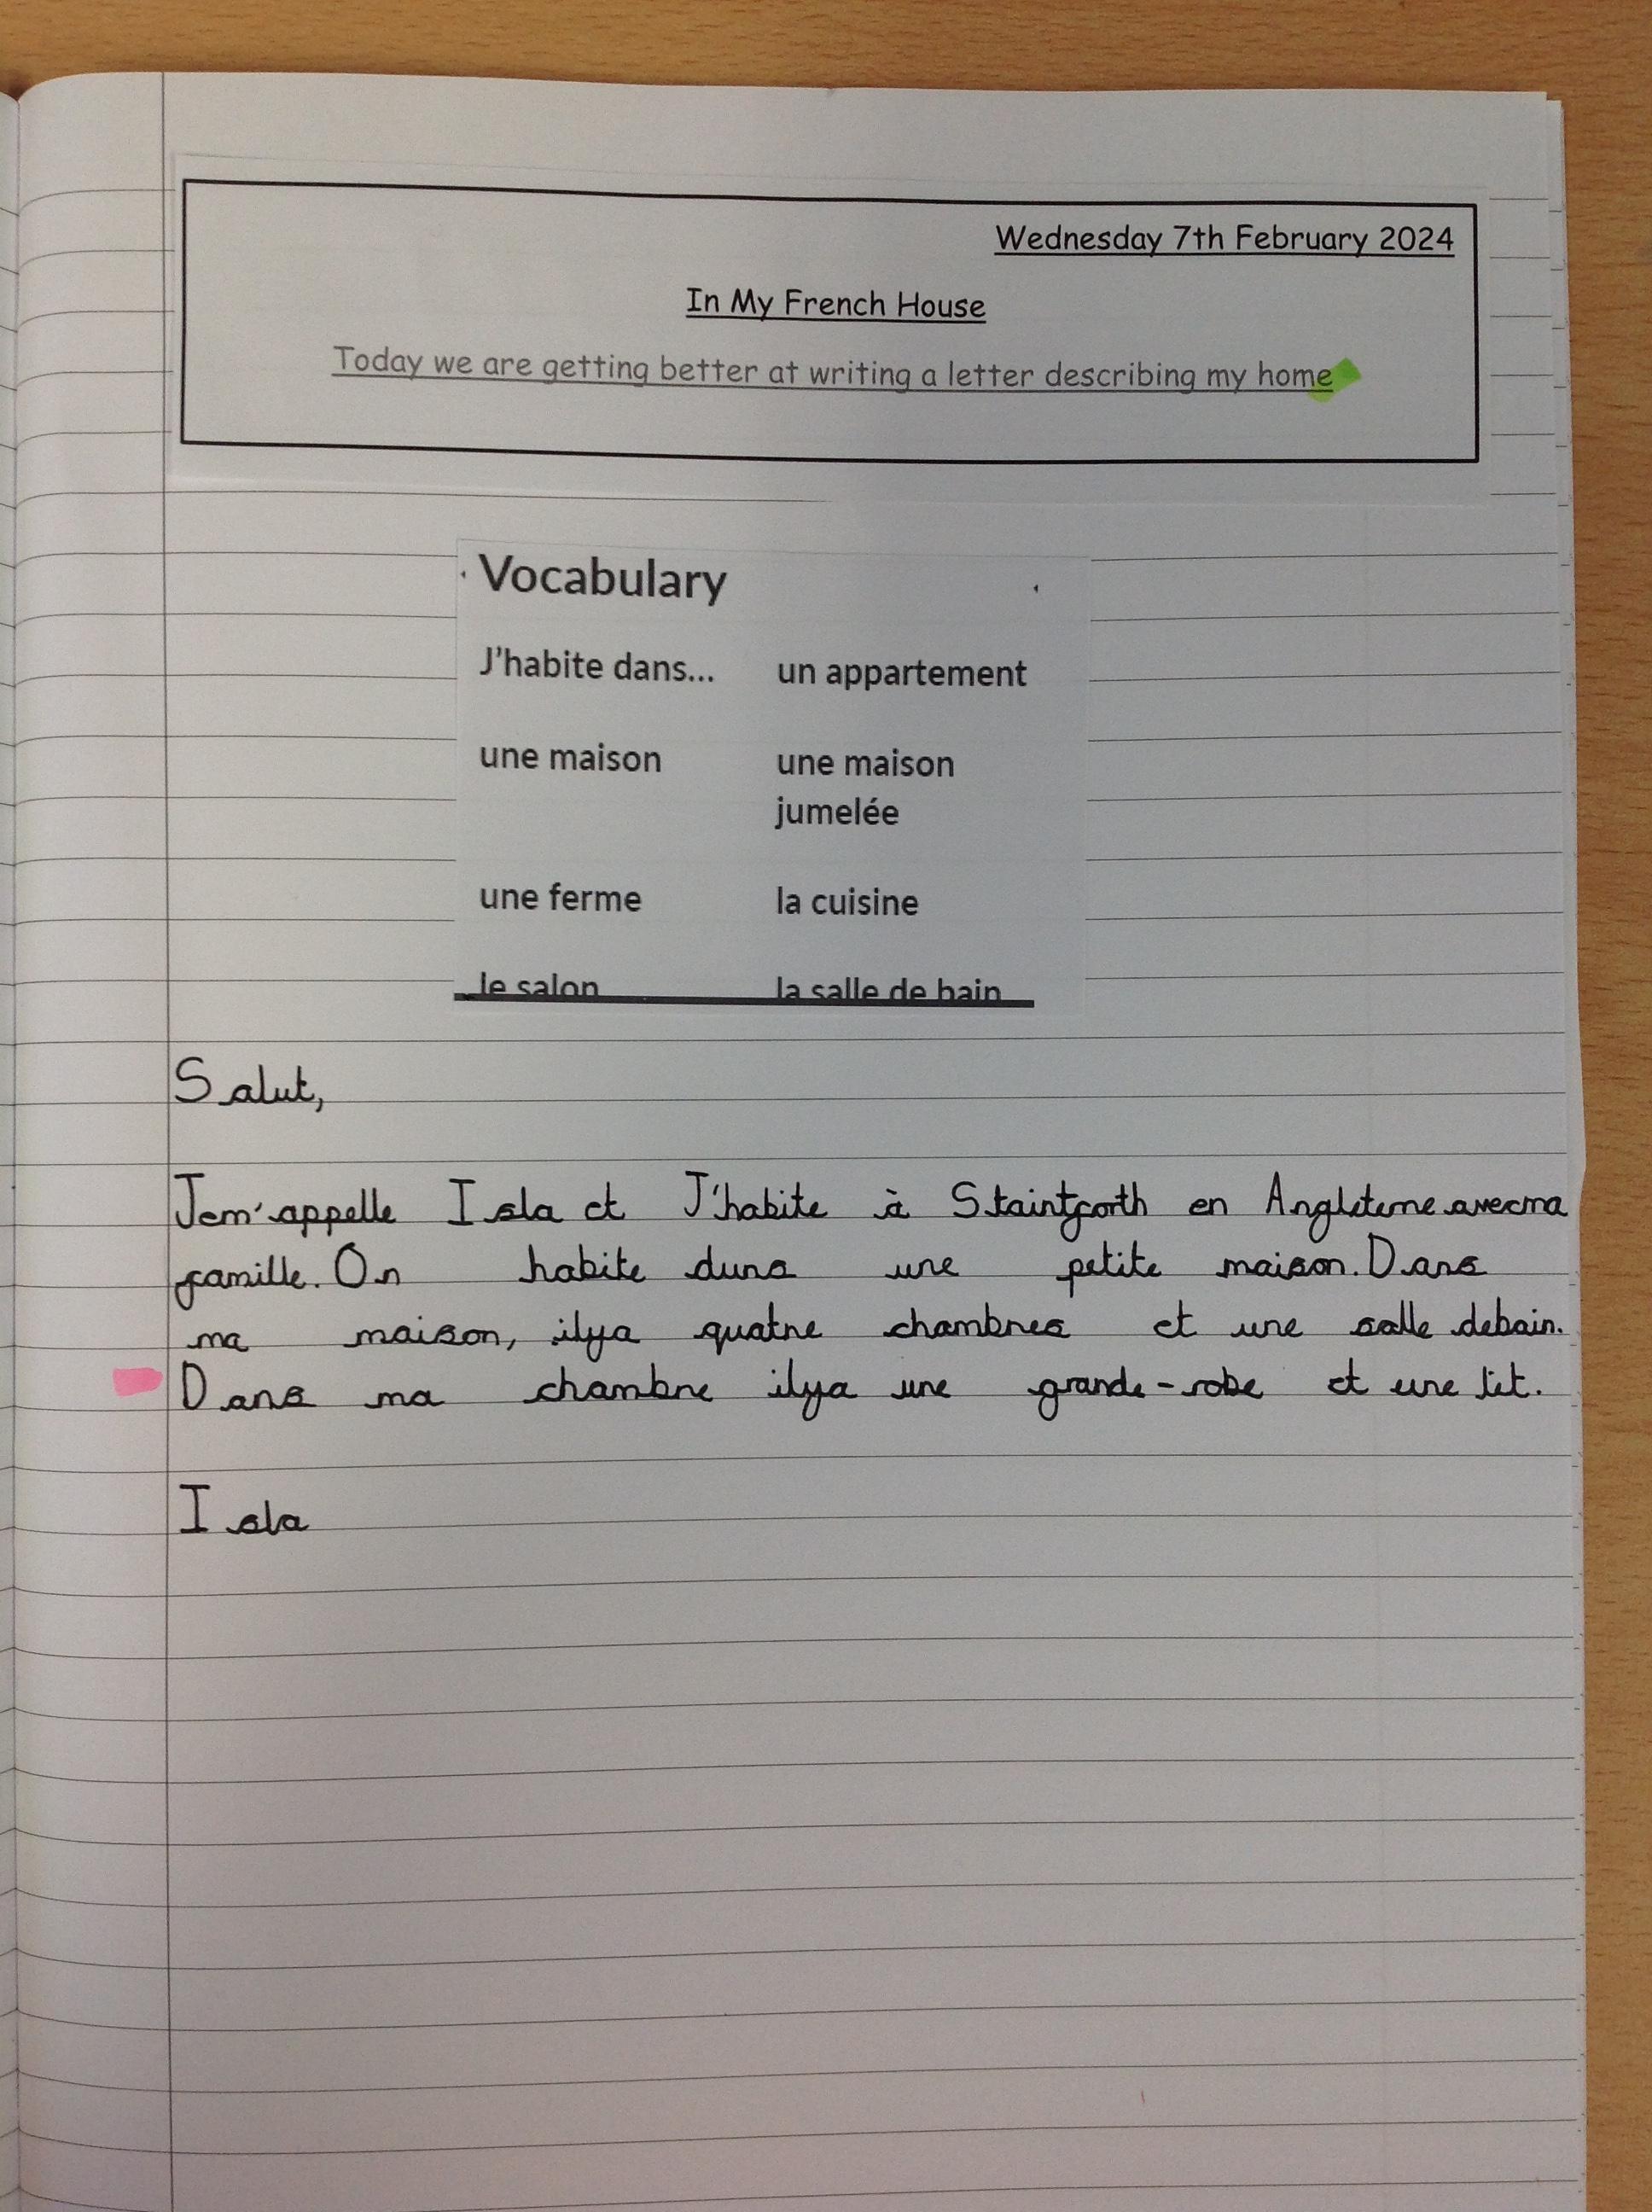 Wednesday 7th February 2024
In My French House
Today we are getting better at writing a letter describing my home
Vocabulary
J'habite dans... un appartement
une maison une maison
jumelée
une ferme la cuisine
le salon la salle de bain
Salut,
Jem'appelle Isla et J'habite à Staintforth en Angleterre avecma
famille. On habite duns une petite maison. Dans
ma maison, ilya quatre chambres et une salle debain.
Dans ma chambre ilya une grande-robe et une lit.
Isla